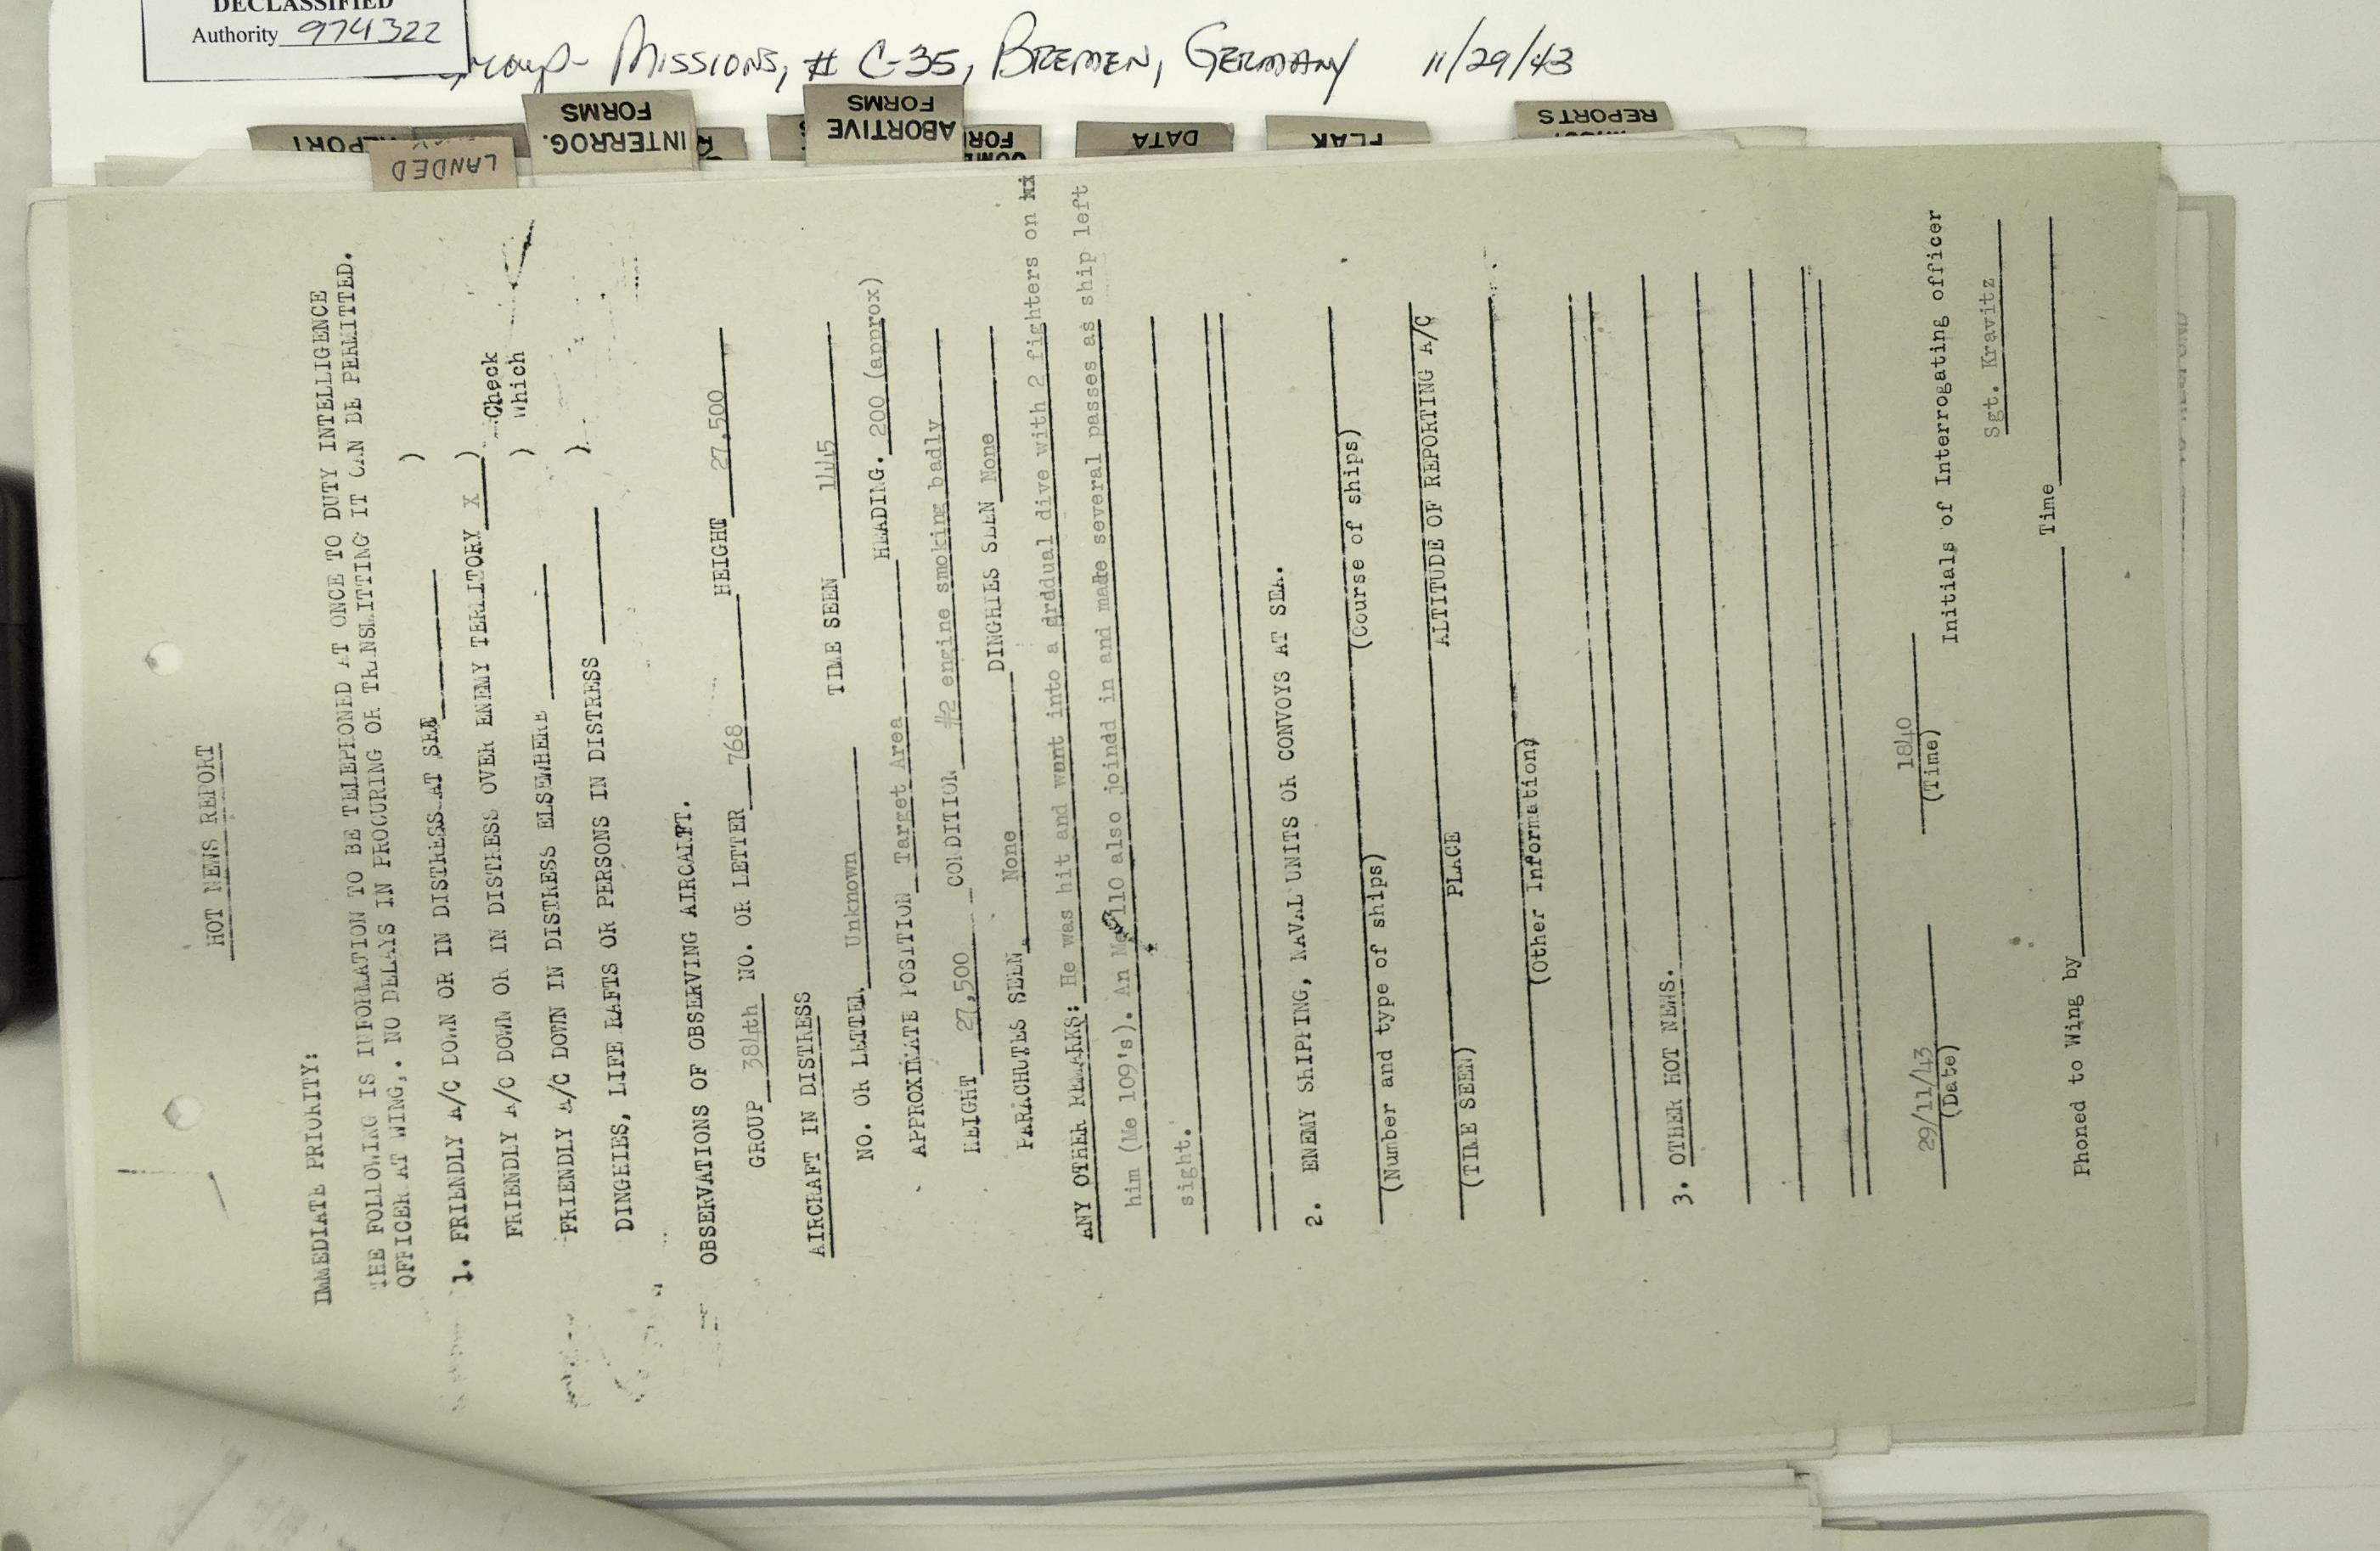 DECLASSIFIED
Authority 974322
Group- Missions, # C-35, Bremen, Germany 11/29/43
REPORT
LANDED
INTERROG.
FORMS
ABORTIVE
FORMS
DATA
FLAK
REPORTS
HOT NEWS REPORT
IMMEDIATE PRIORITY:
THE FOLLOWING IS INFORMATION TO BE TELEPHONED AT ONCE TO DUTY INTELLIGENCE
OFFICER AT WING,. NO DELAYS IN PROCURING OR TRANSMITTING IT CAN BE PERMITTED.
1. FRIENDLY A/C DOWN OR IN DISTRESS AT SEA )
FRIENDLY A/C DOWN OR IN DISTRESS OVER ENEMY TERRITORY X ) Check
FRIENDLY A/C DOWN IN DISTRESS ELSEWHERE ) which
DINGHIES, LIFE RAFTS OR PERSONS IN DISTRESS )
OBSERVATIONS OF OBSERVING AIRCRAFT.
GROUP 384th NO. OR LETTER 768 HEIGHT 27,500
AIRCRAFT IN DISTRESS
NO. OR LETTER Unknown TIME SEEN 1445
APPROXIMATE POSITION Target Area HEADING. 200 (approx)
HEIGHT 27,500 CONDITION #2 engine smoking badly
PARACHUTES SEEN None DINGHIES SEEN None
ANY OTHER REMARKS: He was hit and went into a gradual dive with 2 fighters on
him (Me 109's). An Me 110 also joind in and made several passes as ship left
sight.
2. ENEMY SHIPPING, NAVAL UNITS OR CONVOYS AT SEA.
(Number and type of ships) (Course of ships)
(TIME SEEN) PLACE ALTITUDE OF REPORTING A/C
(Other Information)
3. OTHER HOT NEWS.
29/11/43 1840
(Date) (Time) Initials of Interrogating officer
Sgt. Kravitz
Phoned to Wing by Time